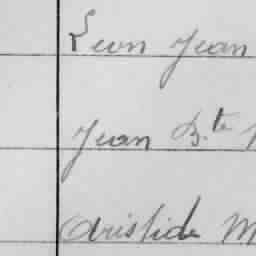 Leon Jean
Jean B.te
Aristide M